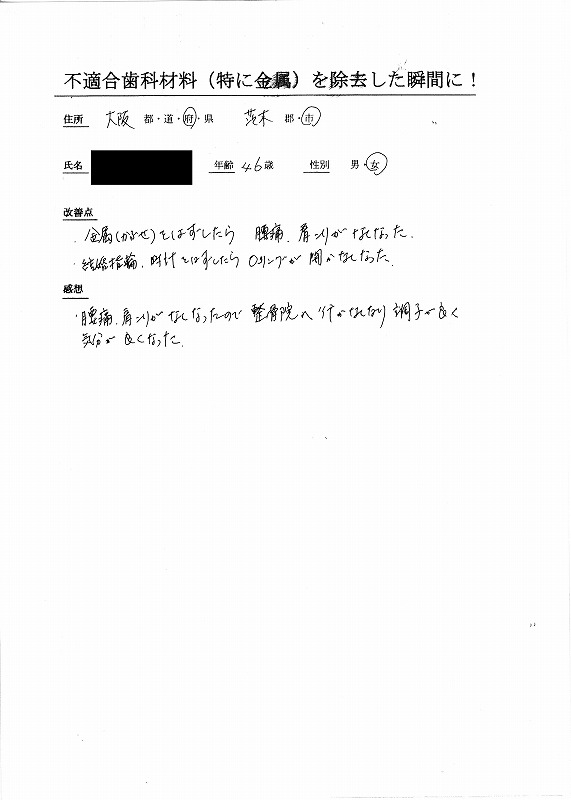 不適合歯科材料（特に金属）を除去した瞬間に！
住所 大阪 都・道・府・県 茨木 郡・市
氏名 年齢 46歳 性別 男・女
改善点
・金属(かぶせ)をはずしたら 腰痛、肩こりがなくなった.
・結婚指輪、時計をはずしたら Oリングが開かなくなった.
感想
・腰痛、肩こりがなくなったので 整骨院へ行かなくなり 調子が良く
気分が良くなった.